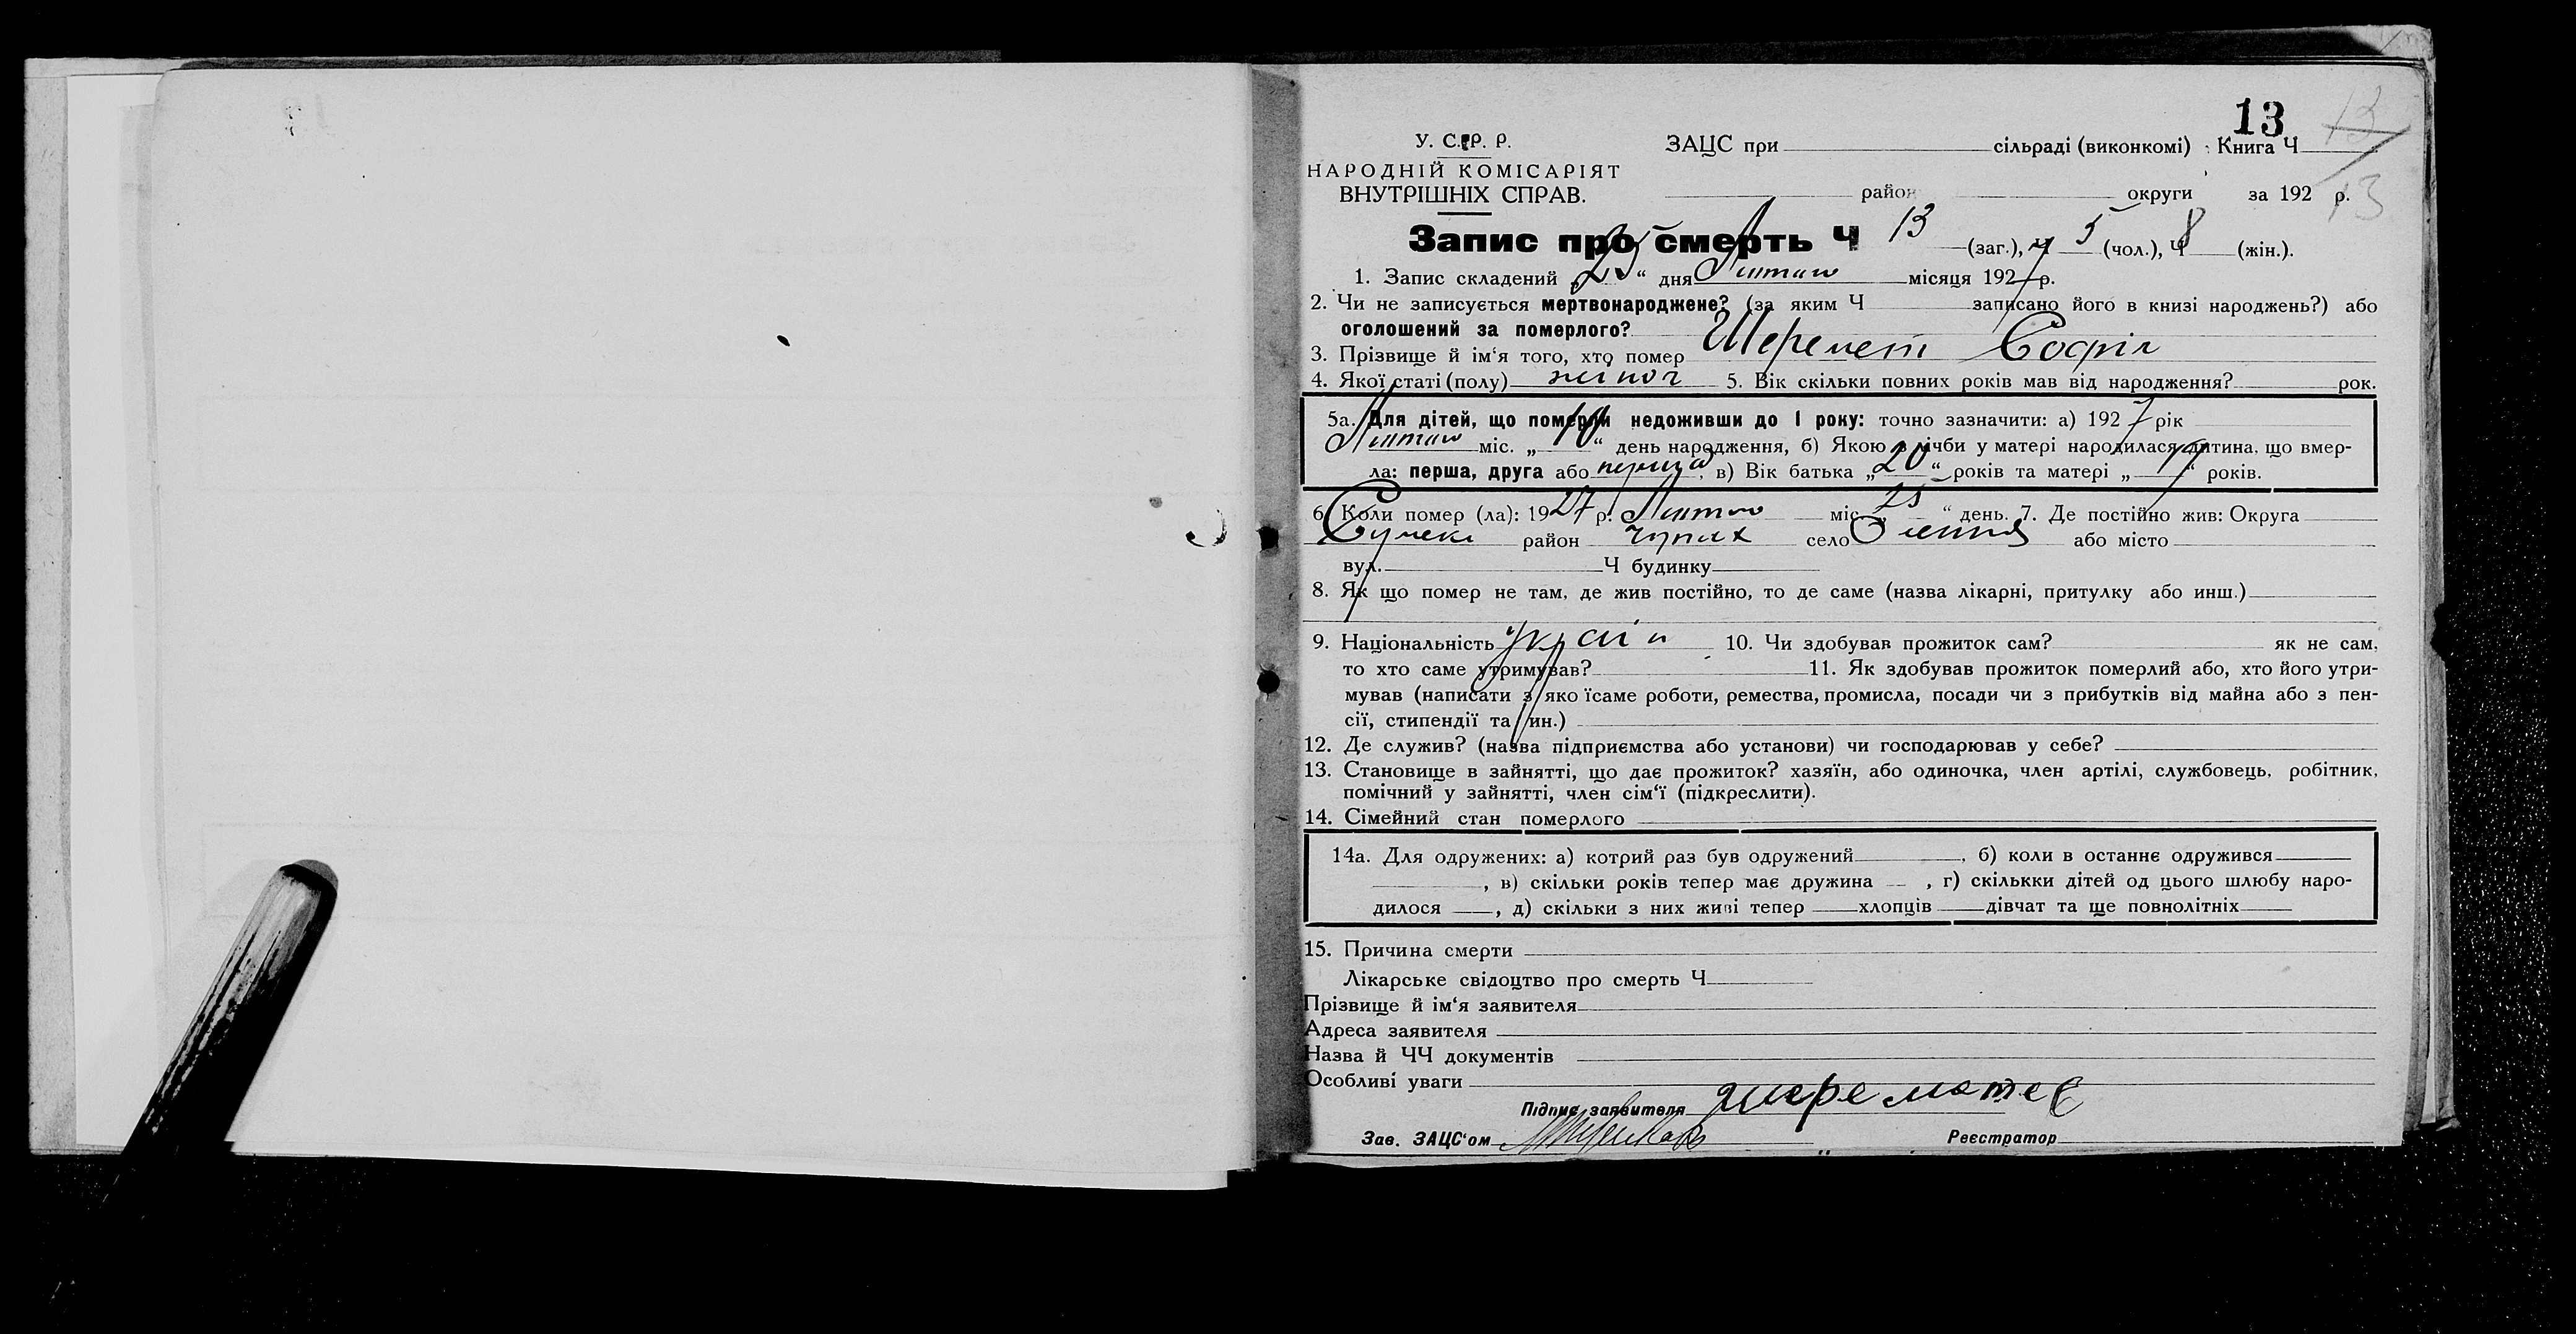 13
13
У. С.Р. Р.
ЗАЦС при сільраді (виконкомі) Книга Ч
НАРОДНІЙ КОМІСАРІЯТ
ВНУТРІШНІХ СПРАВ.
район округи за 192 р.
13
Запис про смерть Ч 13 (заг.), Ч 5 (чол.), Ч 8 (жін.).
1. Запис складений „25“ дня Лютий місяця 1927 р.
2. Чи не записується мертвонароджене? (за яким Ч записано його в книзі народжень?) або
оголошений за померлого?
3. Прізвище й ім‘я того, хто помер Шеремет Софія
4. Якої статі (полу) жіноч 5. Вік скільки повних років мав від народження? рок.
5а. Для дітей, що померли недоживши до 1 року: точно зазначити: а) 1927 рік
міс. „10“ день народження, б) Якою з лічби у матері народилася дитина, що вмер-
ла: перша, друга або перша, в) Вік батька „20“ років та матері „19“ років.
6. Коли помер (ла): 1927 р. міс. „25“ день. 7. Де постійно жив: Округа
Сумськ район Чупах село або місто
вул. Ч будинку
8. Як що помер не там, де жив постійно, то де саме (назва лікарні, притулку або инш.)
9. Національність україн 10. Чи здобував прожиток сам? як не сам,
то хто саме утримував? 11. Як здобував прожиток померлий або, хто його утри-
мував (написати з яко їсаме роботи, ремества, промисла, посади чи з прибутків від майна або з пен-
сії, стипендії та ин.)
12. Де служив? (назва підприємства або установи) чи господарював у себе?
13. Становище в зайнятті, що дає прожиток? хазяїн, або одиночка, член артілі, службовець, робітник,
помічний у зайнятті, член сім‘ї (підкреслити).
14. Сімейний стан померлого
14а. Для одружених: а) котрий раз був одружений, б) коли в останнє одружився
, в) скільки років тепер має дружина , г) скількки дітей од цього шлюбу наро-
дилося , д) скільки з них живі тепер хлопців дівчат та ще повнолітніх
15. Причина смерти
Лікарське свідоцтво про смерть Ч
Прізвище й ім‘я заявителя
Адреса заявителя
Назва й ЧЧ документів
Особливі уваги
Підпис заявителя
Зав. ЗАЦС‘ом Реєстратор